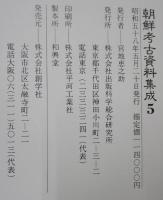 朝鮮考古資料集成 5
昭和五十八年五月二十日発行 鑑定価一四〇〇〇円
発行者 宮地恵之助
発行所 株式会社出版科学総合研究所
東京都千代田区神田小川町二ー三ー二
電話東京(二三三)三二四一(代表)
印刷所 株式会社平河工業社
製本所 和興堂
発売元 株式会社創学社
大阪市北区太融寺町二ー二一
電話大阪〇六(三一一)五〇三一(代表)